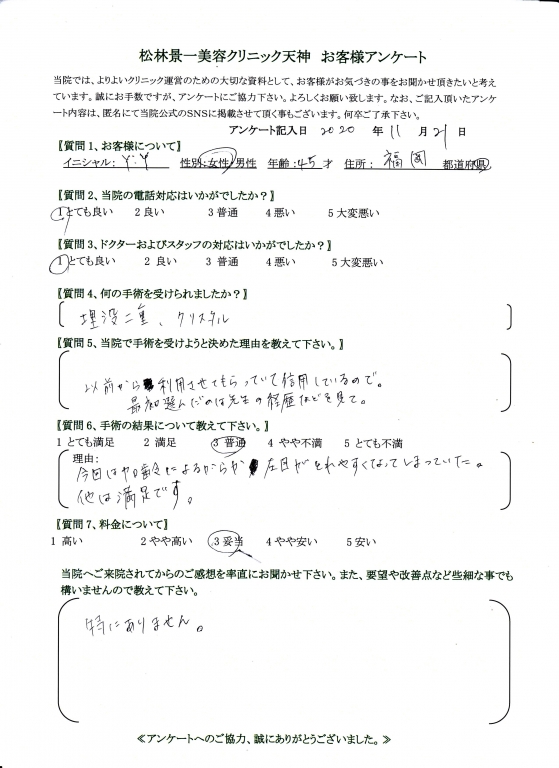 松林景一美容クリニック天神 お客様アンケート
当院では、よりよいクリニック運営のための大切な資料として、お客様がお気づきの事をお聞かせ頂きたいと考え
ています。誠にお手数ですが、アンケートにご協力下さい。よろしくお願い致します。なお、ご記入頂いたアンケ
ート内容は、匿名にて当院公式のSNSに掲載させて頂く事もございます。何卒ご了承下さい。
アンケート記入日 2020 年 11 月 21 日
【質問1、お客様について】
イニシャル： Y.Y 性別:女性/男性 年齢:45才 住所： 福岡 都道府県
【質問2、当院の電話対応はいかがでしたか？】
1とても良い 2 良い 3 普通 4 悪い 5 大変悪い
【質問3、ドクターおよびスタッフの対応はいかがでしたか？】
1とても良い 2 良い 3 普通 4 悪い 5 大変悪い
【質問4、何の手術を受けられましたか？】
埋没二重、クリスタル
【質問5、当院で手術を受けようと決めた理由を教えて下さい。】
以前から利用させてもらっていて信用しているので。
最初選んだのは先生の経歴などを見て。
【質問6、手術の結果について教えて下さい。】
1 とても満足 2 満足 3 普通 4 やや不満 5 とても不満
理由：
今回は年令によるからか左目がとれやすくなってしまっていた。
他は満足です。
【質問7、料金について】
1 高い 2 やや高い 3 妥当 4 やや安い 5 安い
当院へご来院されてからのご感想を率直にお聞かせ下さい。また、要望や改善点など些細な事でも
構いませんので教えて下さい。
特にありません。
≪アンケートへのご協力、誠にありがとうございました。≫